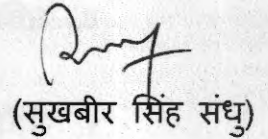 (सुखबीर सिंह संधु)